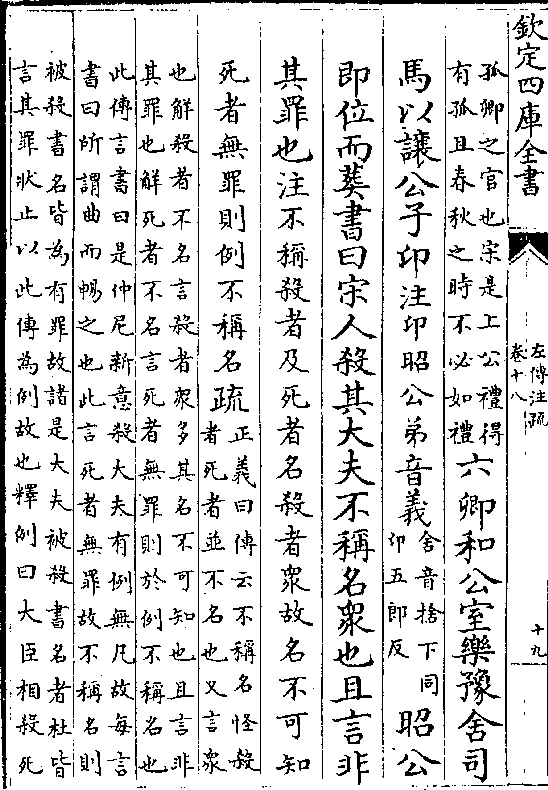 欽定四庫全書
左傳注疏
卷十八
十九
孤卿之官也宋是上公禮得
有孤且春秋之時不必如禮
六卿和公室樂豫舍司
馬以讓公子卬注卬昭公弟音義
舍音捨下同
卬五郎反
昭公
即位而葬書曰宋人殺其大夫不稱名衆也且言非
其罪也注不稱殺者及死者名殺者衆故名不可知
死者無罪則例不稱名疏
正義曰傳云不稱名怪殺
者死者並不名也又言衆
也解殺者不名言殺者衆多其名不可知也且言非
其罪也解死者不名言死者無罪則於例不稱名也
此傳言書曰是仲尼新意殺大夫有例無凡故每言
書曰所謂曲而暢之也此言死者無罪故不稱名則
被殺書名皆為有罪故諸是大夫被殺書名者杜皆
言其罪狀止以此傳為例故也釋例曰大臣相殺死